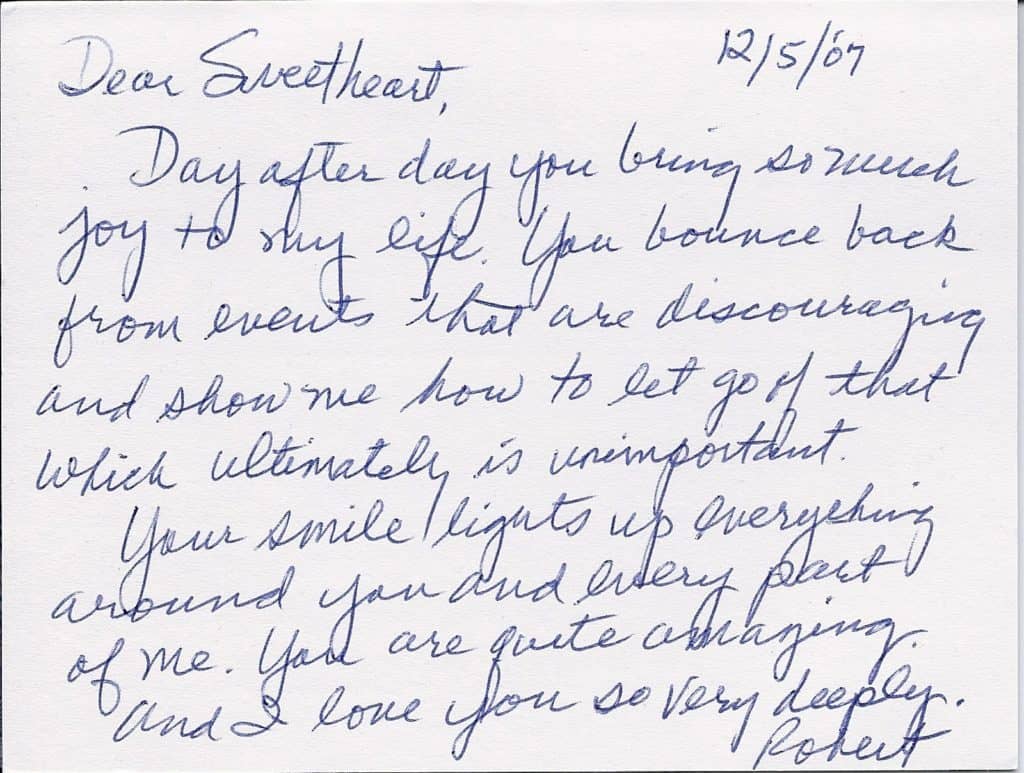 12/5/07
Dear Sweetheart,
Day after day you bring so much
joy to my life. You bounce back
from events that are discouraging
and show me how to let go of that
which ultimately is unimportant.
Your smile lights up everything
around you and every part
of me. You are quite amazing.
And I love you so very deeply.
Robert